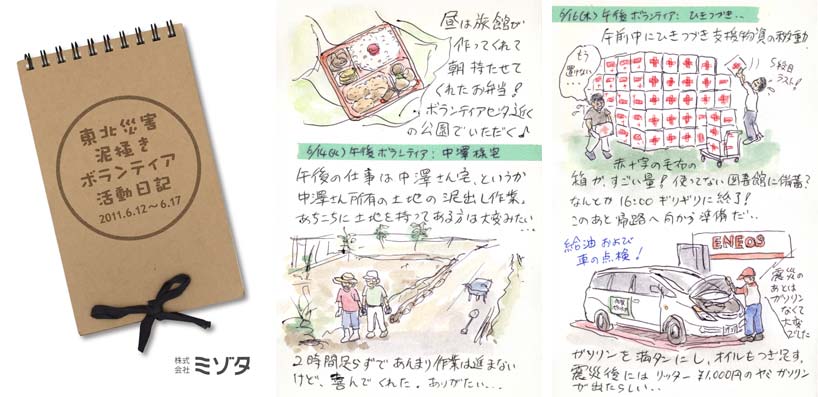 東北災害
泥掻き
ボランティア
活動日記
2011.6.12～6.17
株式
会社
ミゾタ
昼は旅館が
作ってくれて
朝持たせて
くれたお弁当！
ボランティアセンタ近く
の公園でいただく♪
6/14(火) 午後ボランティア：中澤様宅
午後の仕事は中澤さん宅、というか
中澤さん所有の土地の泥出し作業。
あちこちに土地を持ってある方は大変みたい…
2時間足らずであんまり作業は進まない
けど、喜んでくれた。ありがたい…
6/16(木) 午後ボランティア：ひきつづき…
午前中にひきつづき支援物資の移動
もう
置けない…
ラスト！
赤十字の毛布の
箱が、すごい量！使ってない図書館に備蓄？
なんとか16:00ギリギリに終了！
このあと帰路へ向かう準備だ…
給油および
車の点検！
ENEOS
震災の
あとは
ガソリン
なくて
大変
でした
ガソリンを満タンにし、オイルもつぎ足す。
震災後にはリッター¥1,000円のヤミガソリン
が出たらしい…